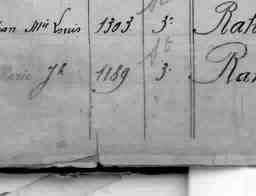 ian Mie Louis 1303 3e Rat
Marie Jh 1189 3. Ran